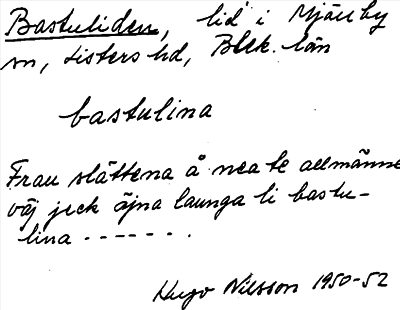 Bastuliden, lid i Mjällby
sn, Listers hd, Blek. län
bastulina
Frau slättena å nea te allmänne
väj jeck äjna launga ti bastu-
lina - - - - - - - .
Hugo Nilsson 1950-52